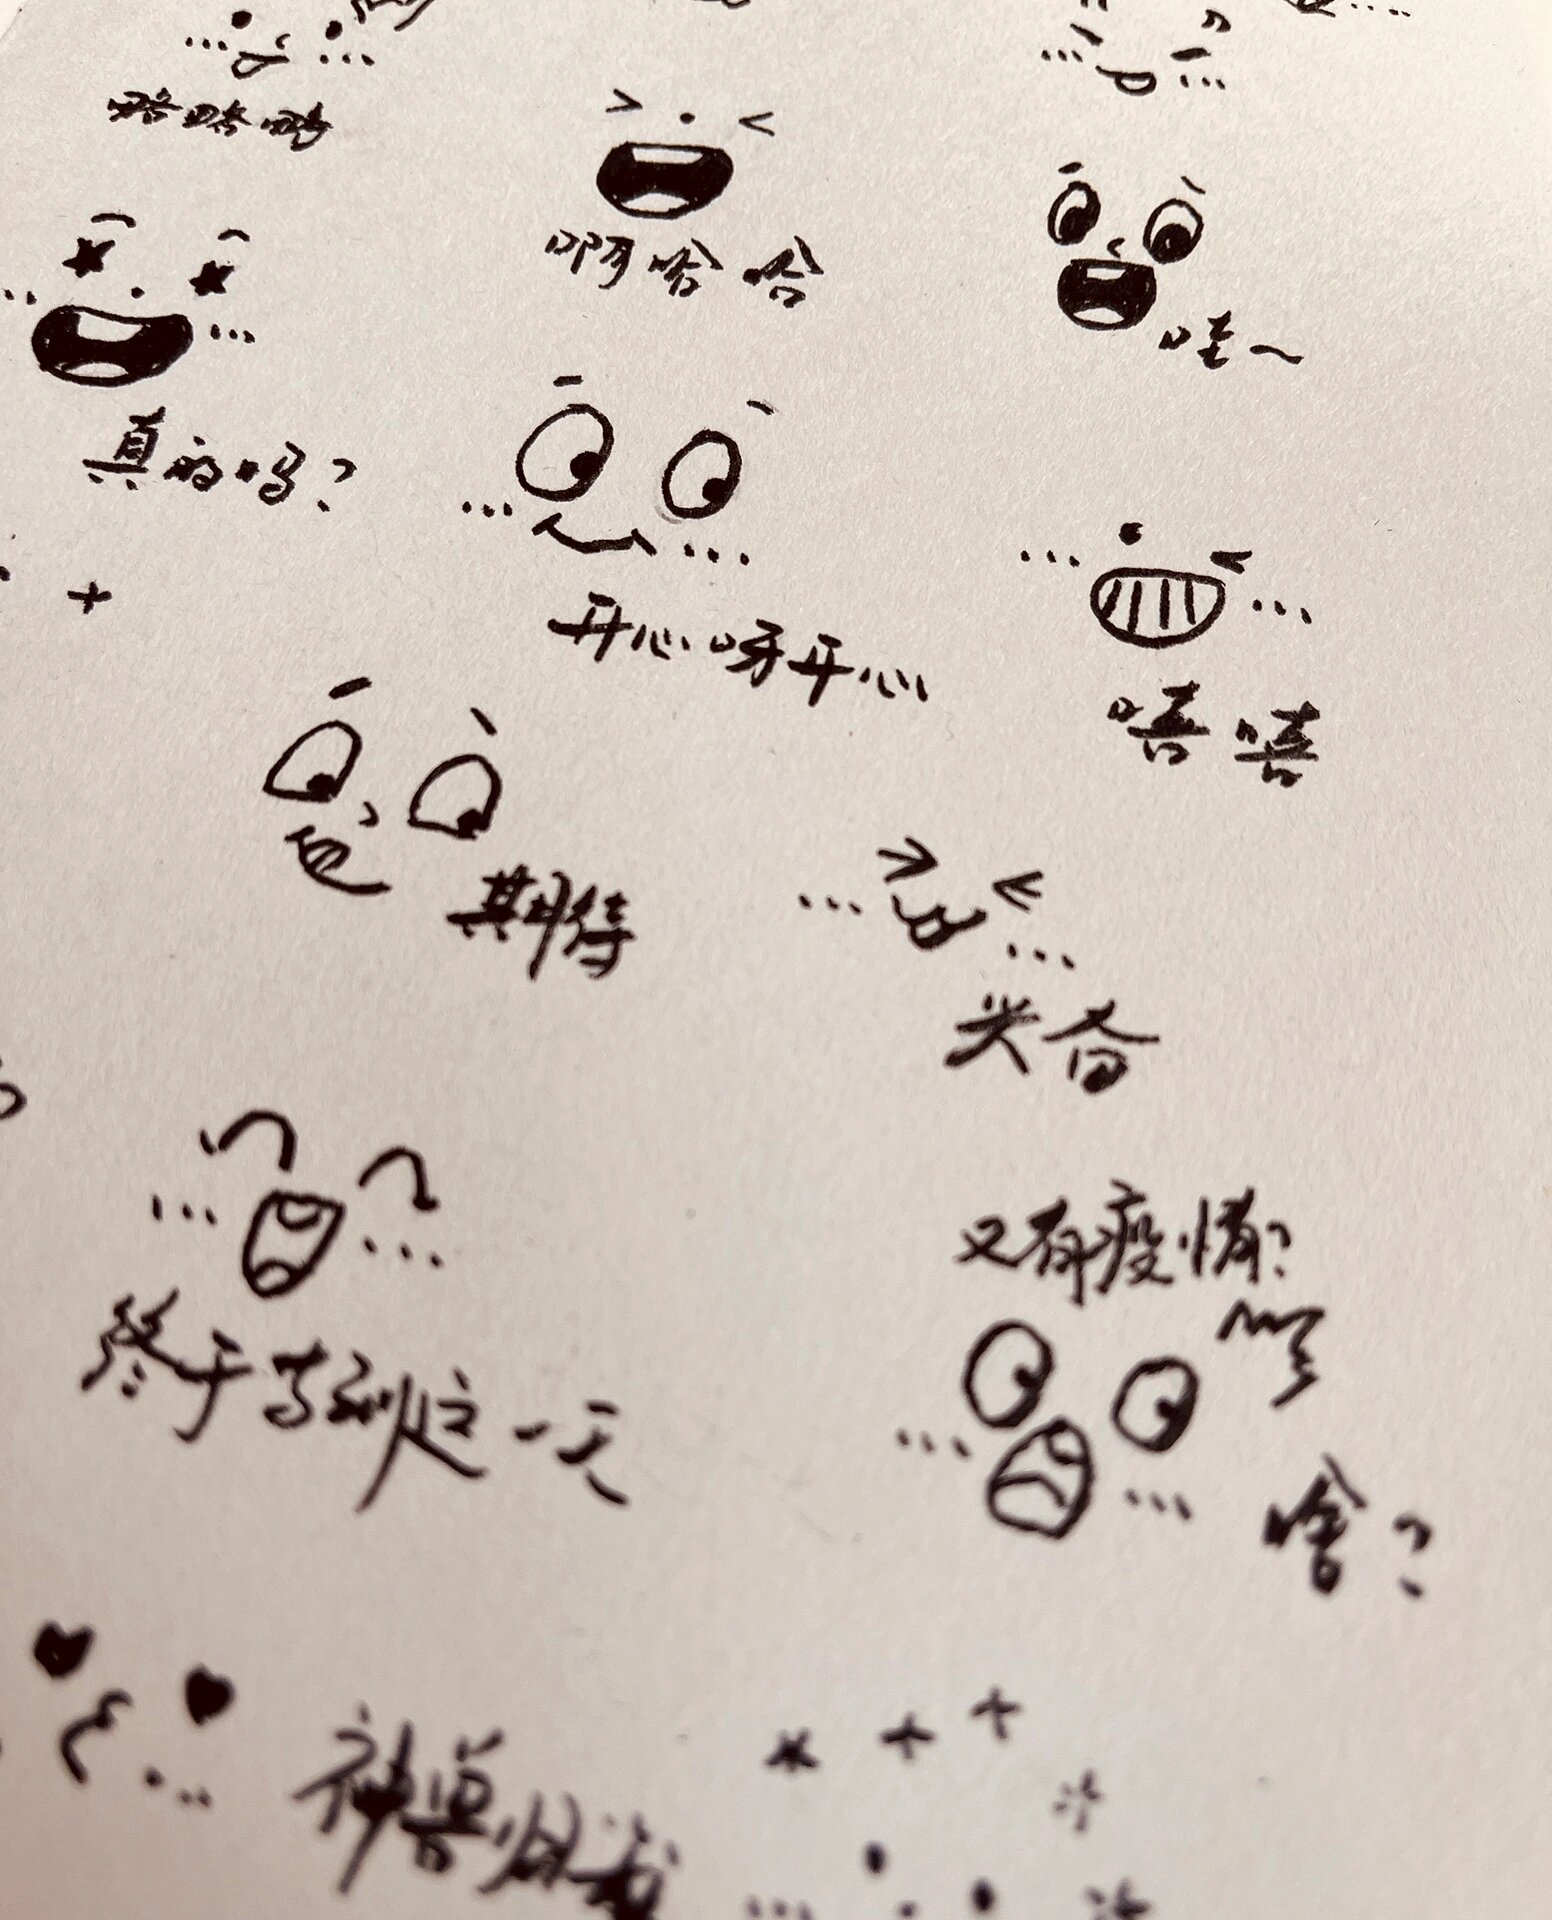 略略略
啊哈哈
哇~
真的吗?
开心呀开心
嘻嘻
期待
兴奋
终于等到这一天
又有疫情?
啥?
神兽归